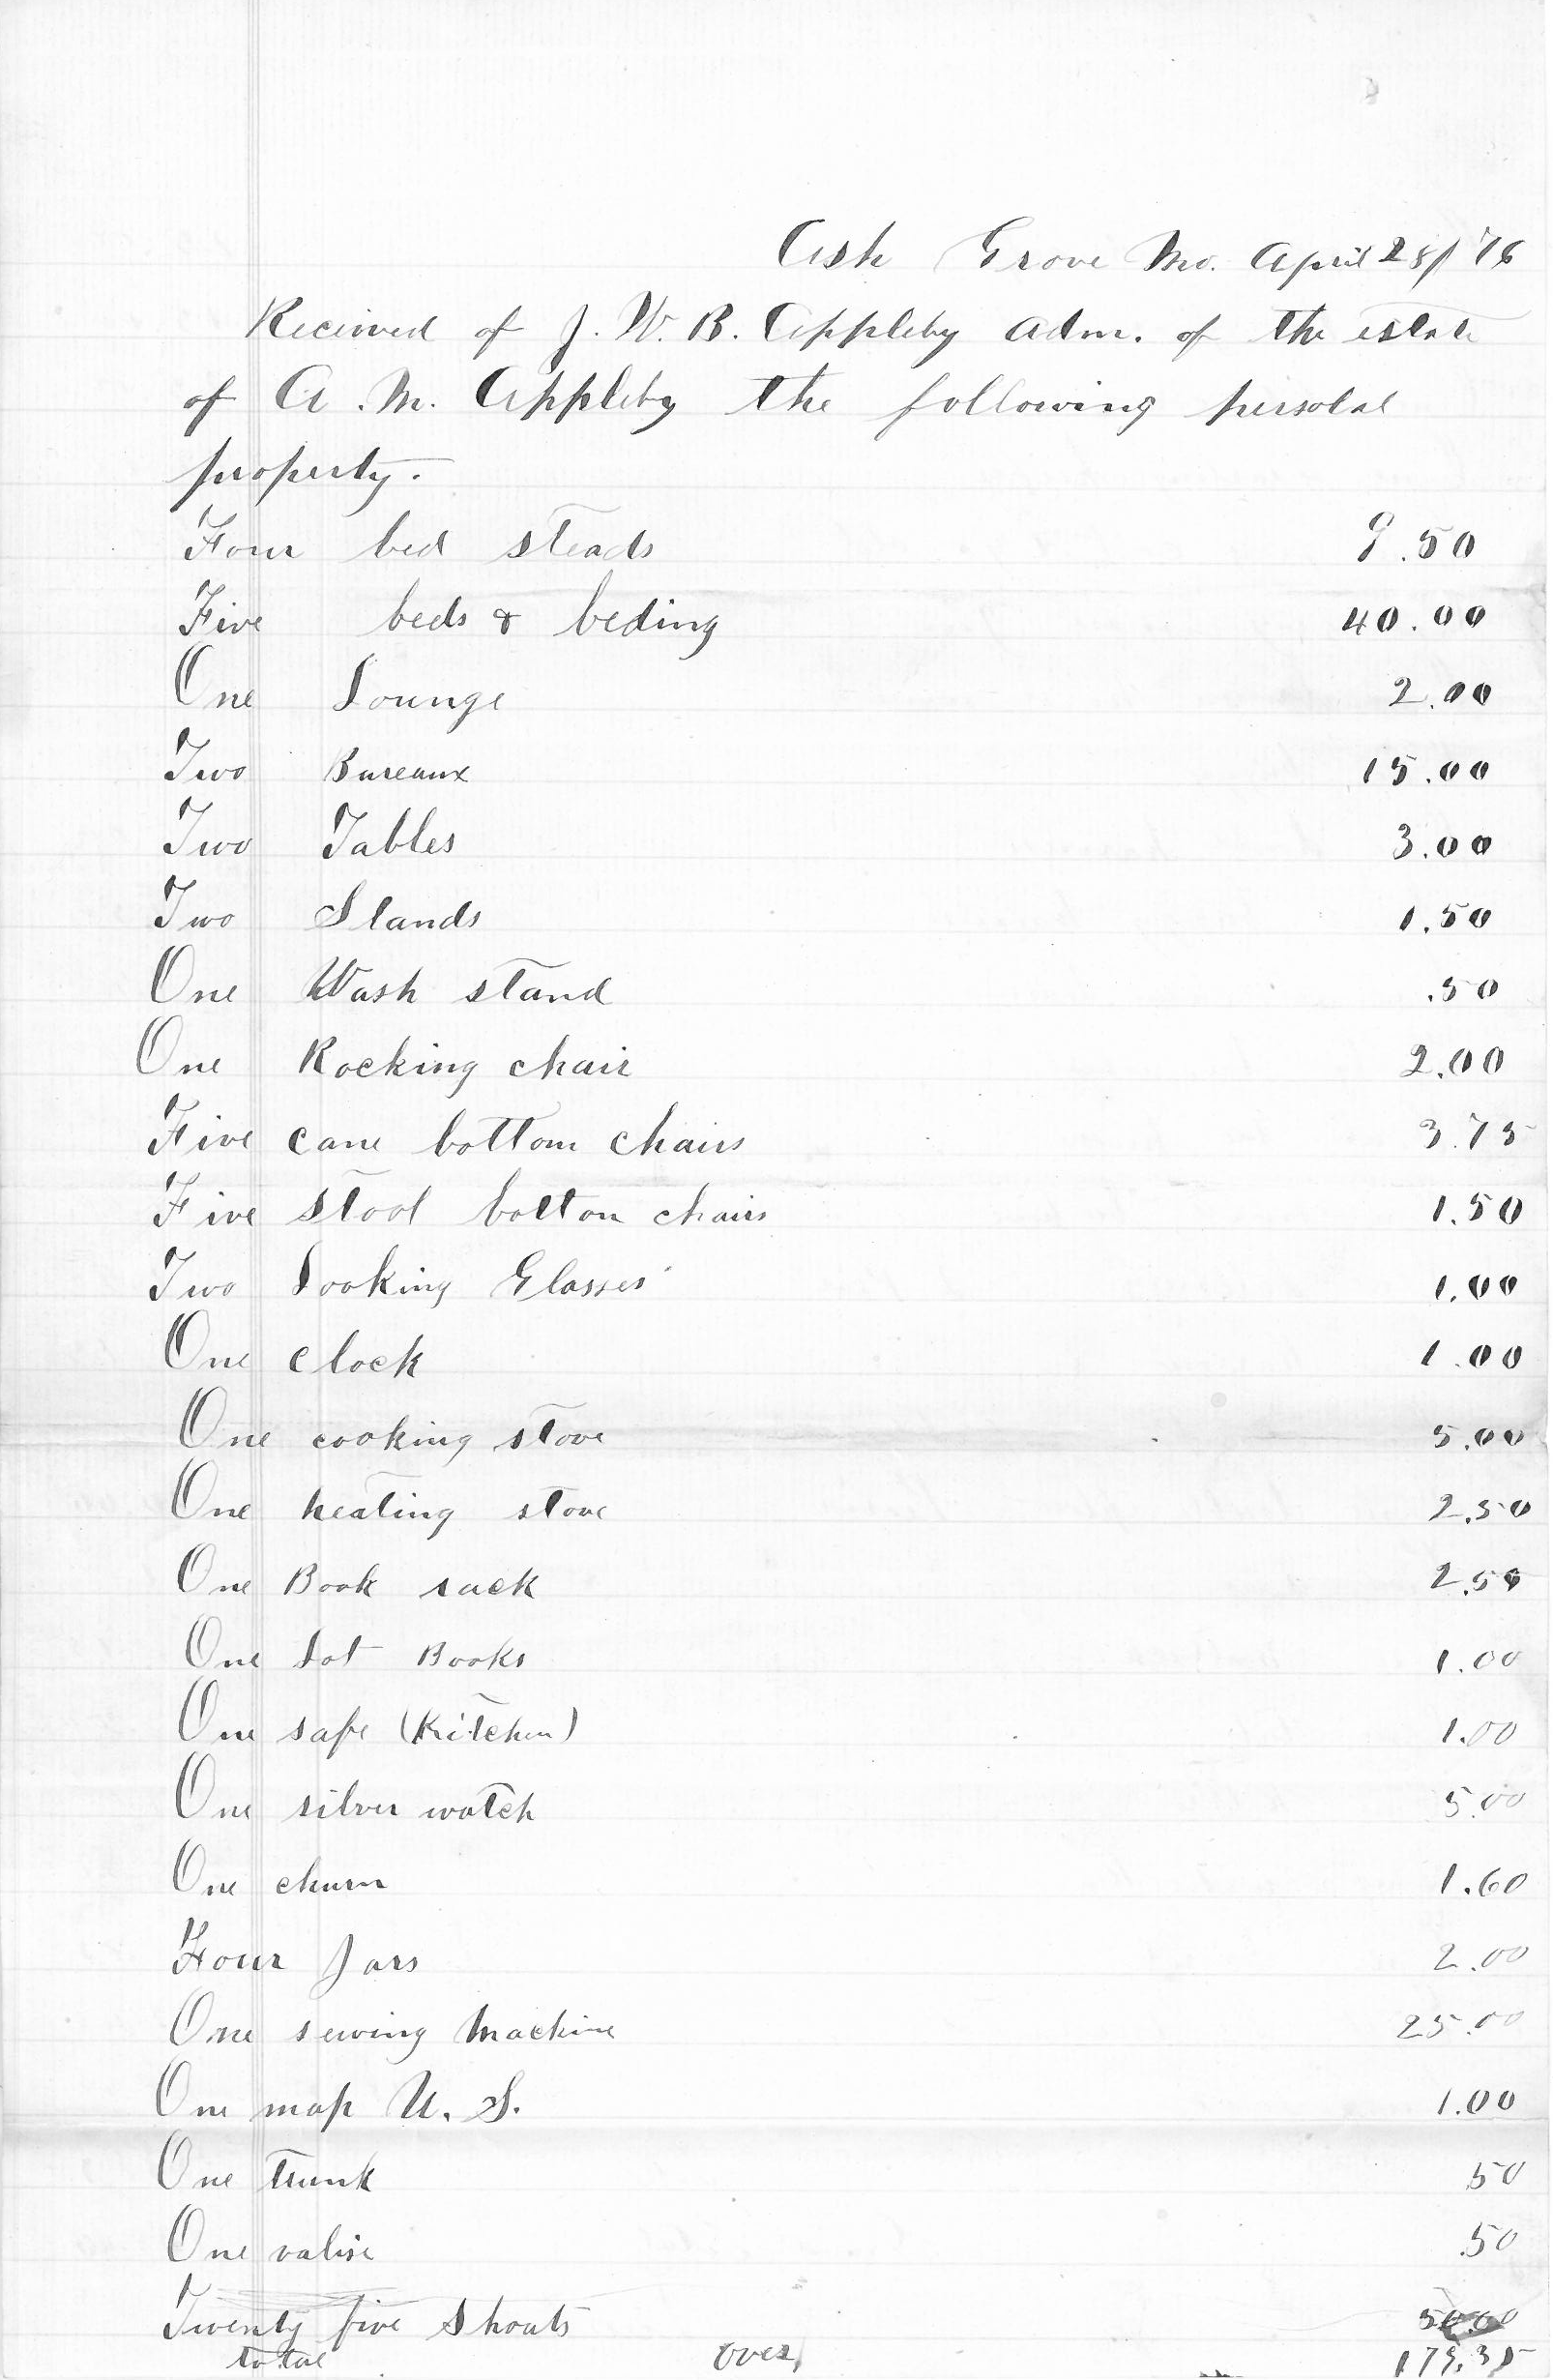 Ash Grove Mo. April 28/76
Received of J. W. B. Appleby adm. of the estate
of A. M. Appleby the following persolal
property.
Four bed steads 9.50
Five beds & beding 40.00
One Lounge 2.00
Two Bureaux 15.00
Two Tables 3.00
Two Stands 1.50
One Wash stand .50
One Rocking chair 2.00
Five cane bottom chairs 3.75
Five stool bottom chairs 1.50
Two Looking Glasses 1.00
One clock 1.00
One cooking stove 5.00
One heating stove 2.50
One Book rack 2.50
One Lot Books 1.00
One safe (Kitchen) 1.00
One silver watch 5.00
One churn 1.60
Four Jars 2.00
One sewing Machine 25.00
One map U. S. 1.00
One trunk 50
One valise .50
Twenty five Shoats 50.00
total over, 178.35